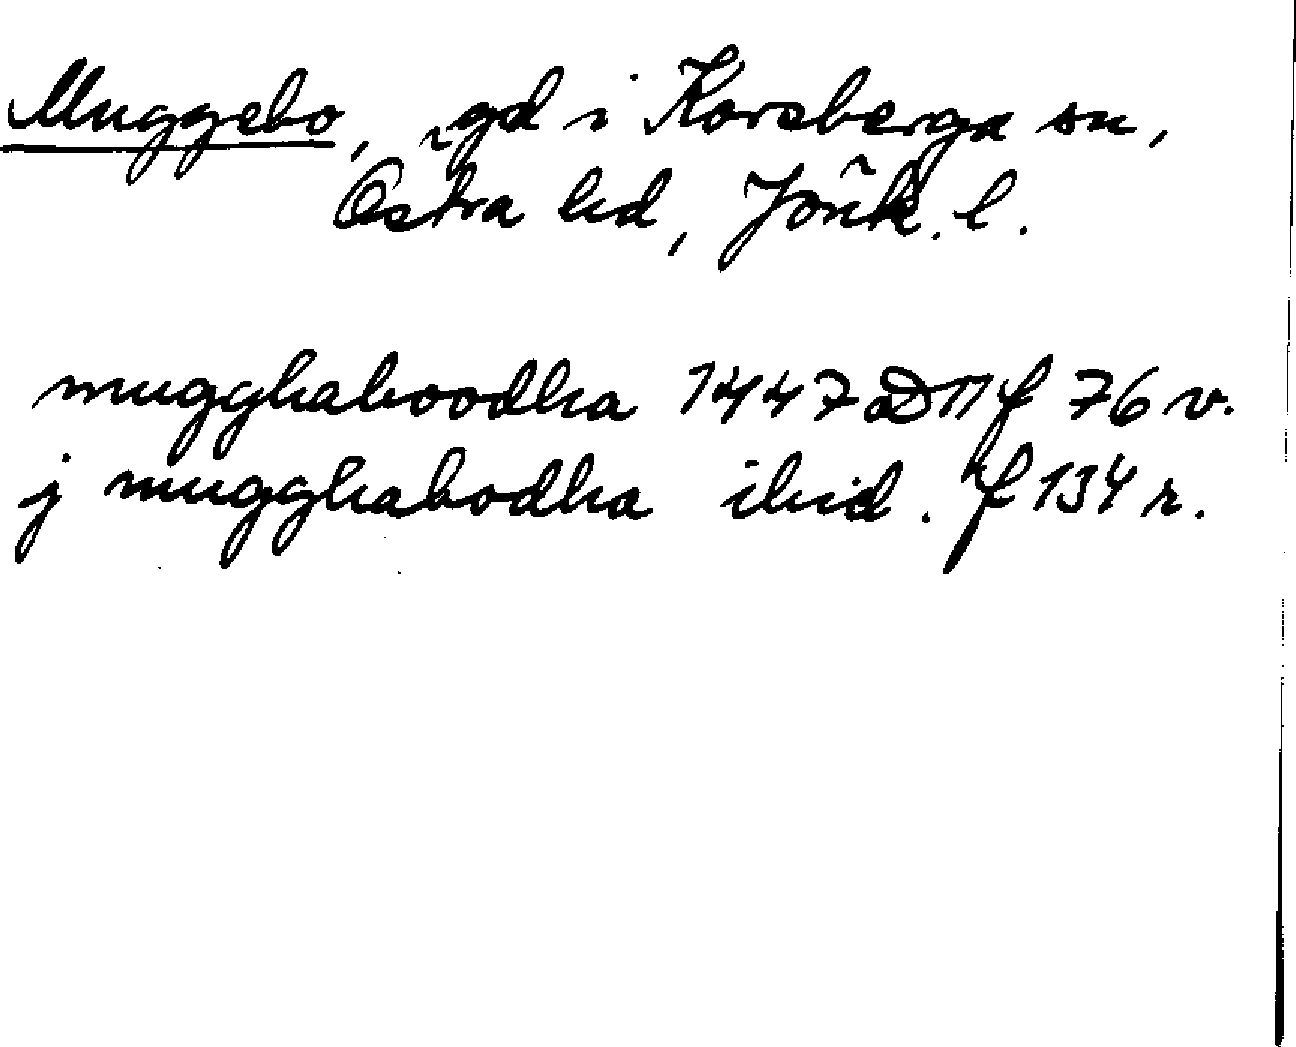 Muggebo, gd i Korsberga sn,
Östra hd, Jönk. l.
mugghaboodha 1447 D11 f 76 v.
j mugghabodha ibid. f 134 r.